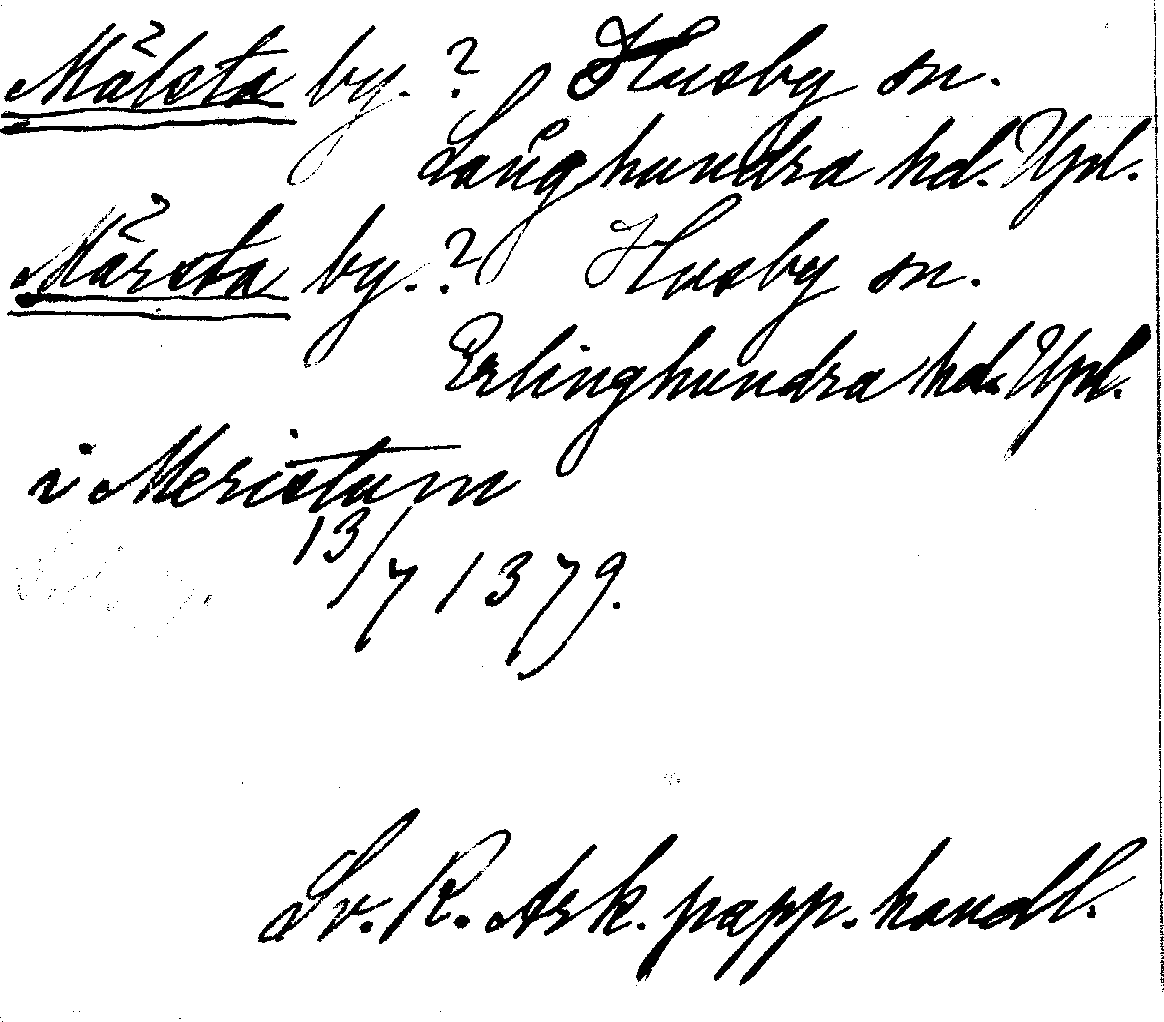 Mälsta by. ? Husby sn.
Långhundra hd. Upl.
Märsta by. ? Husby sn.
Erlinghundra hd. Upl.
i Meristum
13/7 1379.
Sv. R. Ark. papp. handl.